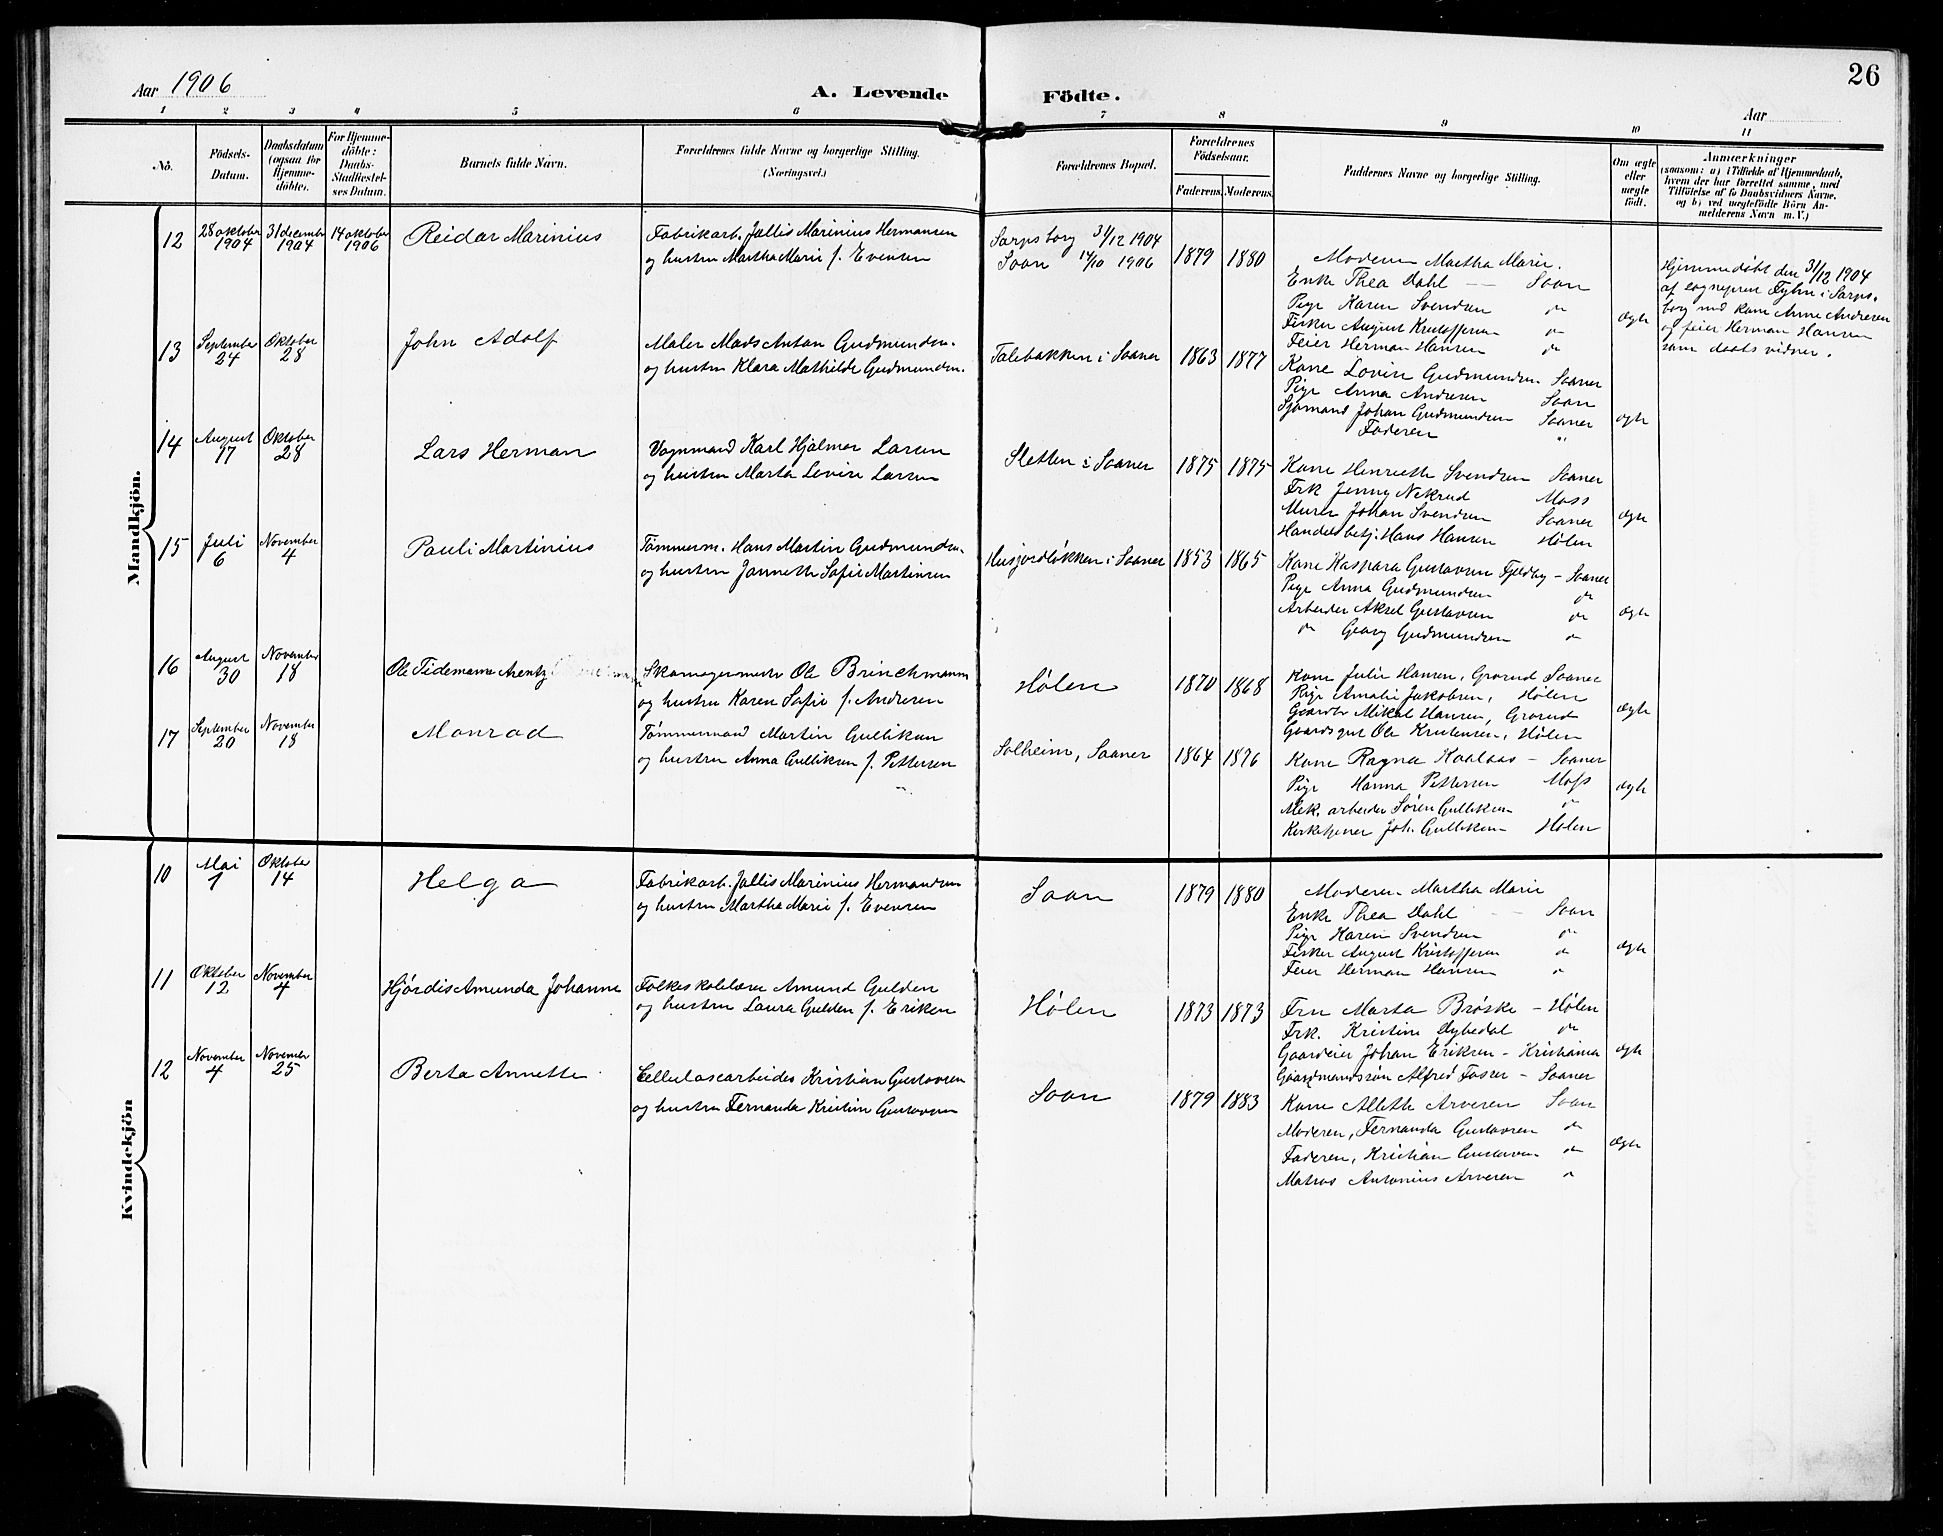 26
Aar 1906
A. Levende Födte.
Aar
1 2 3 4 5 6 7 8 9 10 11
Nô.
Födsels-Datum.
Daabsdatum (ogsaa for Hjemmedöbte).
For Hjemmedöbte: Daabs-Stadfæstelses Datum.
Barnets fulde Navn.
Forældrenes fulde Navne og borgerlige Stilling.
(Næringsvei.)
Forældrenes Bopæl.
Forældrenes Födselsaar.
Faderens. Moderens.
Faddernes Navne og borgerlige Stilling.
Om ægte eller uægte födt.
Anmærkninger
(saasom: a) i Tilfælde af Hjemmedaab,
hvem der har forrettet samme, med
Tilföielse af to Daabsvidners Navne,
og b) ved uægtefödte Börn An-
melderens Navn m. V.)
Mandkjön.
12 28 oktober 1904 31 december 1904 14 oktober 1906 Reidar Marinius
Fabrikarb. Jallis Marinius Hermansen
og hustru Martha Marie f. Evensen
Sarpsborg 31/12 1904
Soon 14/10 1906
1879 1880
Moderen Martha Marie.
Enke Thea Dahl — Soon
Pige Karen Svendsen do
Fisker August Kristoffersen do
Feier Herman Hansen do
ægte
Hjemmedøbt den 31/12 1904
af sogneprest Fyhn i Sarps-
borg med kone Anne Andresen
og feier Herman Hansen
som daabsvidner.
13 September 24 Oktober 28 John Adolf
Maler Mads Anton Gudmundsen.
og hustru Klara Mathilde Gudmundsen.
Talebakken i Saaner 1863 1877
Kone Lovise Gudmundsen Saaner
Pige Anna Andresen Soon
Sjømand Johan Gudmundsen Saaner
Faderen "
ægte
14 August 17 Oktober 28 Lars Herman
Vognmand Karl Hjalmar Larsen
og hustru Marta Lovise Larsen
Sletten i Saaner 1875 1875
Kone Henriette Svendsen Saaner
Frk Jenny Nekrud Moss
Murer Johan Svendsen Saaner
Handelsbetj. Hans Hansen Hølen
ægte
15 Juli 6 November 4 Pauli Martinius
Tømmerm. Hans Martin Gudmundsen.
og hustru Jannette Sofie Martinsen
Husjordløkken i Saaner 1853 1865
Kone Kaspara Gustavsen Fjeldby - Saaner
Pige Anna Gudmundsen do
Arbeider Aksel Gustavsen do
do Georg Gudmundsen do
ægte
16 August 30 November 18 Ole Tidemann Arentz
Skomagermester Ole Brinchmann
og hustru Karen Sofie f. Andresen
Hølen 1870 1868
Kone Julie Hansen, Grorud Saaner
Pige Amalie Jakobsen, Hølen
Gaardbr. Mikal Hansen, Grorud
Gaardsgut Ole Kristensen, Hølen
ægte
17 September 20 November 18 Monrad
Tømmermand Martin Gulliksen
og hustru Anna Gulliksen f. Pettersen
Solheim, Saaner 1864 1876
Kone Ragna Haalaas - Saaner
Pige Hanna Pettersen Moss
Mek. arbeider Søren Gulliksen do
Kirketjener Joh. Gulliksen Hølen
ægte
Kvindekjön
10 Mai 1 Oktober 14 Helga
Fabrikarb. Jallis Marinius Hermansen
og hustru Martha Marie f. Evensen
Soon 1879 1880
Moderen Martha Marie
Enke Thea Dahl — Soon
Pige Karen Svendsen do
Fisker August Kristoffersen do
Feier Herman Hansen do
ægte
11 Oktober 12 November 4 Hjørdis Amunda Johanne
Folkeskolelærer Amund Gulden
og hustru Laura Gulden f. Eriksen
Hølen 1873 1873
Fru Marta Brøske - Hølen
Frk. Kristine Dybedal do
Gaardeier Johan Eriksen - Kristiania
Gaardmandssøn Alfred Fosser - Saaner
ægte
12 November 4 November 25 Berta Annette
Cellulosearbeider Kristian Gustavsen
og hustru Fernanda Kristine Gustavsen
Soon 1879 1883
Kone Allette Arvesen Soon
Moderen, Fernanda Gustavsen do
Faderen, Kristian Gustavsen do
Matros Antonius Arvesen do
ægte